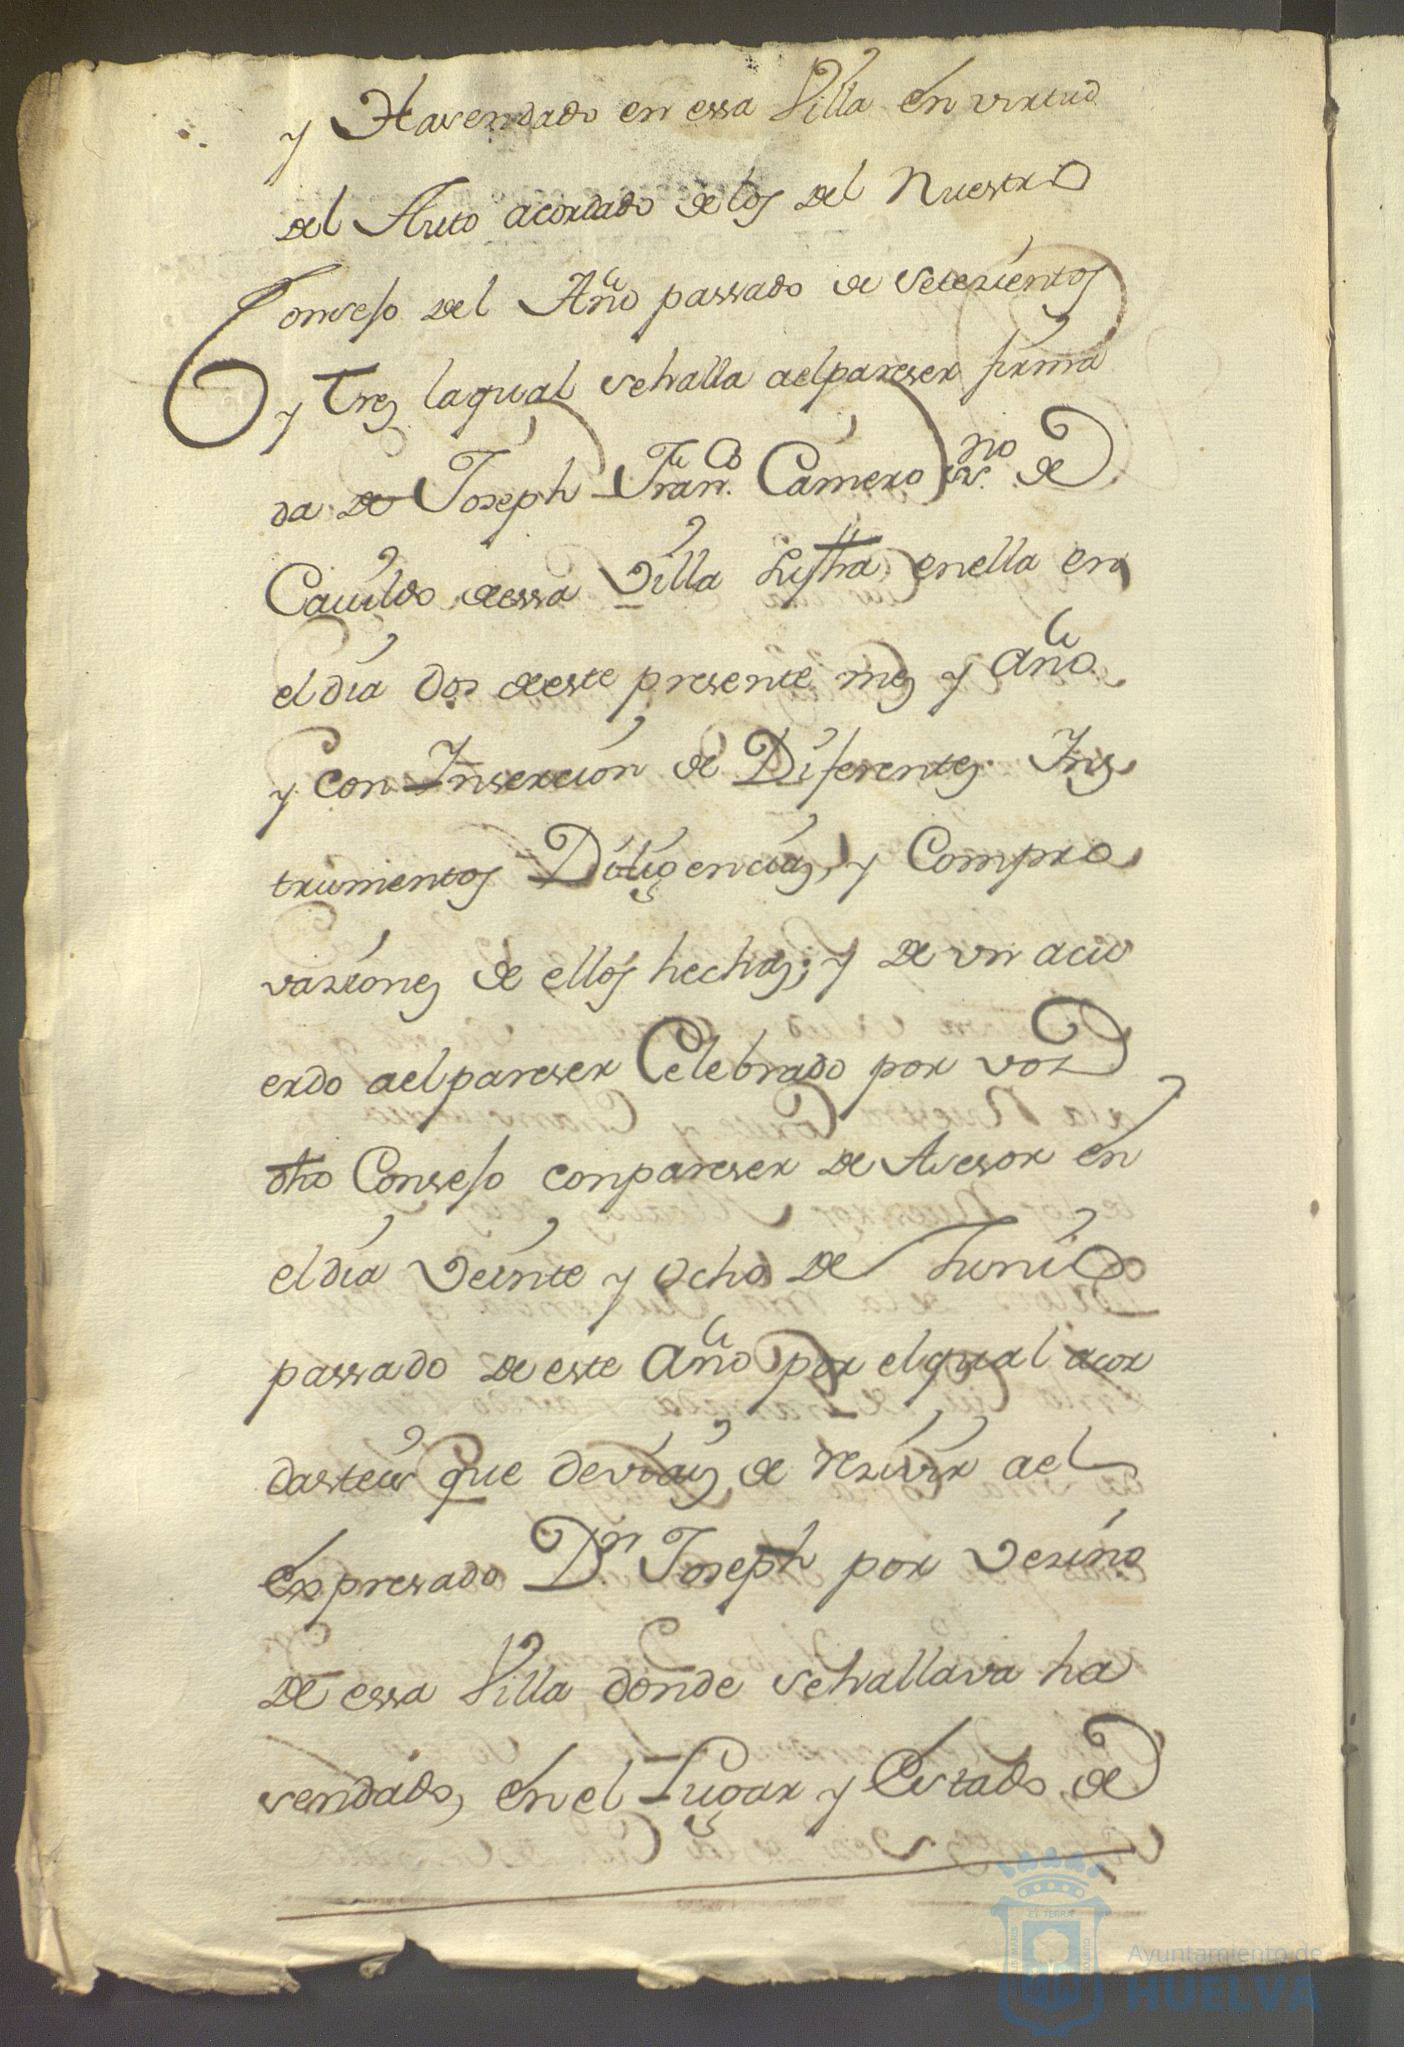 y Hasendado en essa Villa en virtud
del Auto acordado de los del Nuestro
Conseso del Año passado de setesientos
y tres laqual sehalla aelpareser firma
da de Joseph Fran.co Camero ss.no de
Cavildo dessa Villa su fha enella en
el dia dos deeste presente mes y año
y con Insersion de Diferentes Ins
trumentos Diligencias, y Compro
vasiones de ellos hechas; y de un acu
erdo aelpareser Celebrado por vos
dho Conseso conpareser de Asesor en
el dia veinte y ocho de Junio
passado de este año por elqual acor
dasteis que deviais de resivir ael
expresado Dn Joseph por vesino
de essa Villa donde sehallava ha
sendado, en el Lugar y Estado de
Ayuntamiento de
HUELVA